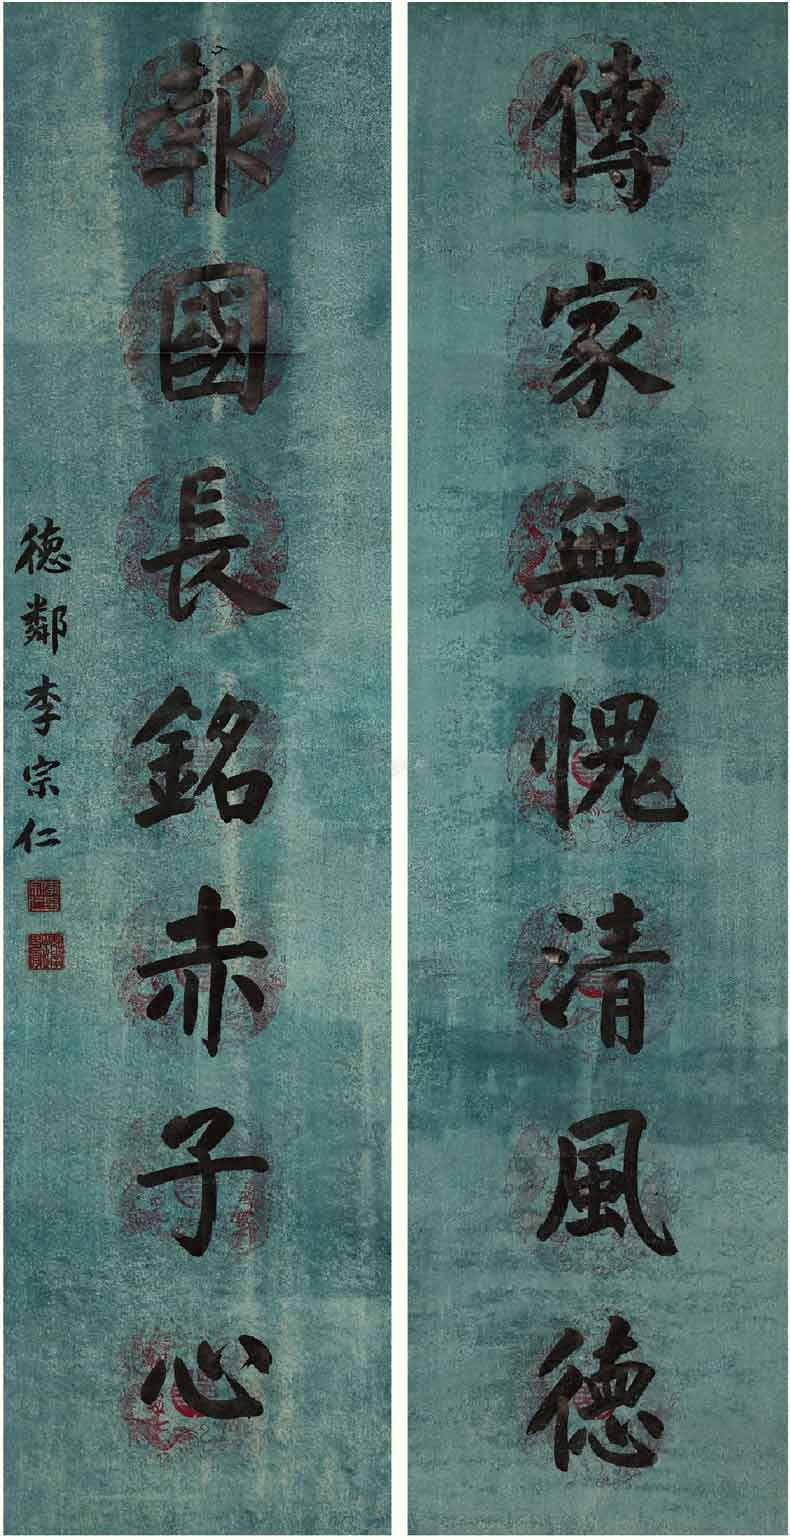 傳家無愧清風德
報國長銘赤子心
德鄰李宗仁